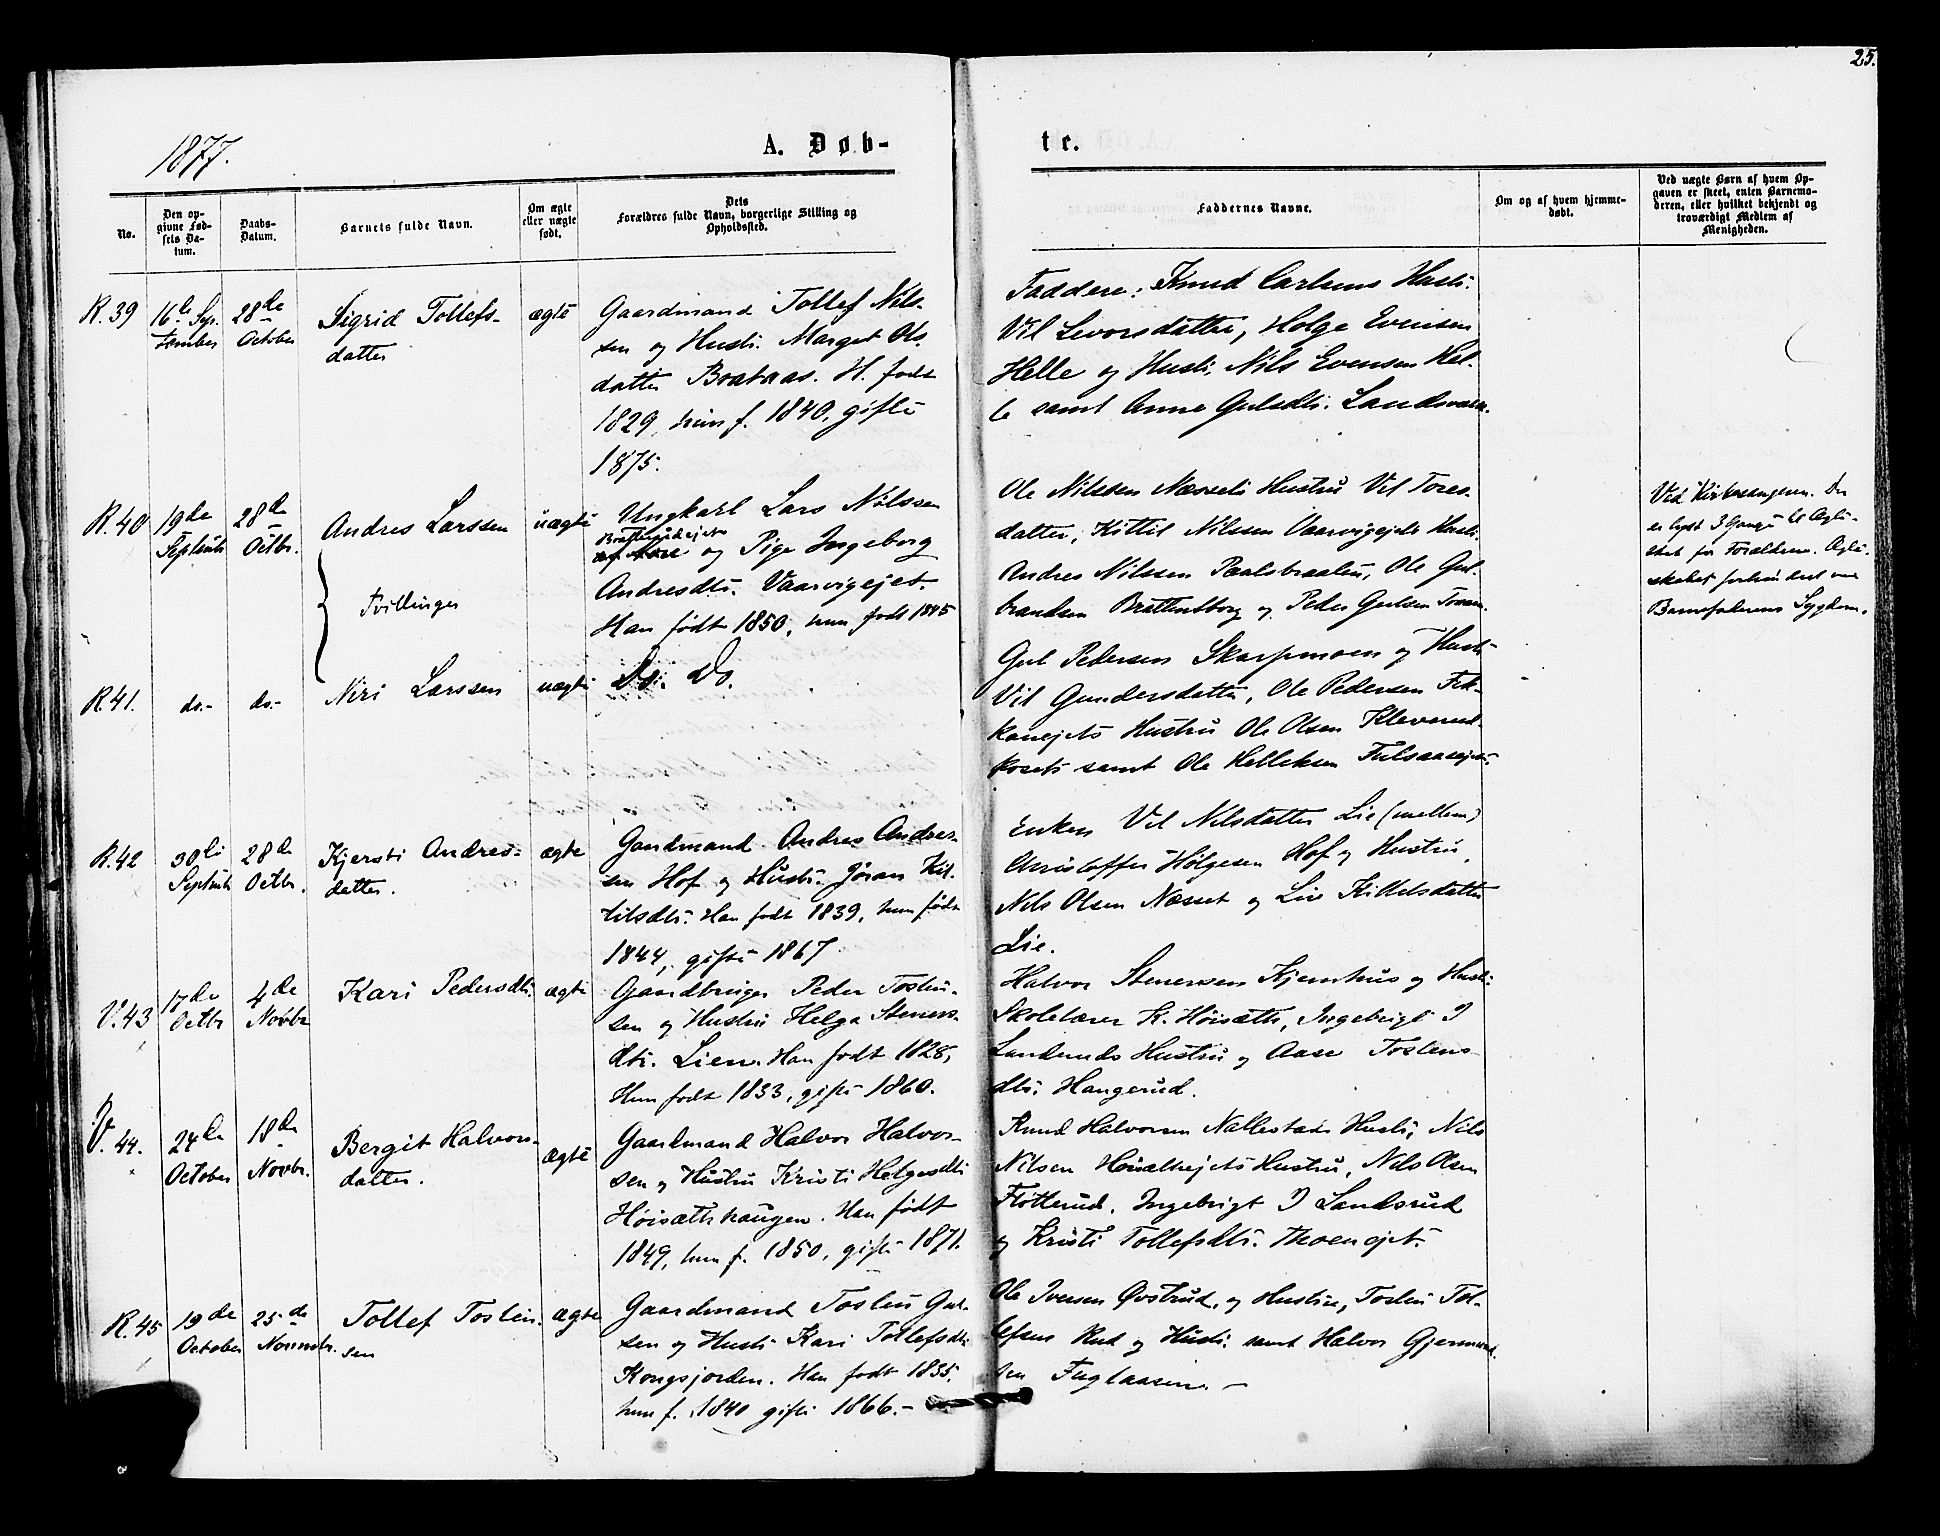 25.
1877.
A. Døb-
te.
No.
Den op-
givne Fød-
sels Da-
tum.
Daabs-
Datum.
Barnets fulde Navn.
Om ægte
eller uægte
født.
Dets
Forældres fulde Navn, borgerlige Stilling og
Opholdssted.
Faddernes Navne.
Om og af hvem hjemme-
døbt.
Ved uægte Børn af hvem Op-
gaven er skeet, enten Barnemo-
deren, eller hvilket bekjendt og
troværdigt Medlem af
Menigheden.
R. 39
16de Sep-
tember
28de
October
Sigrid Tollefs-
datter
ægte
Gaardmand Tollef Nils-
sen og Hustr. Margit Ols-
datter Braataas. H. født
1829, hun f. 1840, gifte
1875.
Faddere: Knud Carlsens Hustr.
Vil Levorsdatter, Holge Evensen
Helle og Hustr, Nils Evensen Hel-
le samt Anne Gulsdtr.
R. 40
19de
Septmbr
28de
Octbr.
Andres Larssen
uægte
Ungkarl Lars Nilssen
og Pige Ingeborg
Andresdtr. Vaarvigejet.
Han født 1850, hun født 1845
Ole Nilssen Næssets Hustru Vil Tores-
datter, Kittil Nilssen Vaarvigejets Hustr.
Andres Nilssen Ole Gul-
brandsen og Peder Gulsen
Ved Kirkesangeren. Der
er lyst 3 Gange til Ægte-
skab for Forældrene. Ægte-
skabet forhindret ved
Barnefaderens Sygdom.
Tvillinger
R. 41.
do.-
do.-
Niri Larssen
uægte
Do. Do.
Gul Pedersen Skarpmoen og Hustr
Vil Gundersdatter, Ole Pedersen Fek-
kanejets Hustru Ole Olsen
samt Ole Helleksen
R. 42
30te
Septmbr
28de
Octbr.
Kjersti Andres-
datter.
ægte
Gaardmand Andres Andres-
sen Hof og Hustr. Jøran Kit-
tilsdtr. Han født 1839, hun født
1844, gifte 1867
Enken Vil Nilsdatter Lie (mellem)
Christoffer Holgesen Hof og Hustru,
Nils Olsen Næsset og Liv Kittilsdatter
Lie.
V. 43
17de
Octbr
4de
Novbr
Kari Pedersdtr.
ægte
Gaardbruger Peder Tosten-
sen og Hustru Helga Steners-
dtr. Lien. Han født 1828,
Hun født 1833, gifte 1860.
Halvor Stenersen Kjemhus og Hustr.
Skolelærer K. Høisæth, Ingebrigt I
Landsruds Hustru og Aase Tostens-
dtr. Haugerud.
V. 44.
24de
October
18de
Novbr.
Bergit Halvors-
datter.
ægte
Gaardmand Halvor Halvor-
sen og Hustru Kristi Helgesdtr
Høisæthhaugen. Han født
1849, hun f. 1850, gifte 1871.
Knud Halvorsen Hustr, Nils
Nilsen Høisæthejets Hustru, Nils Olsen
Fløtterud, Ingebrigt I Landsrud
og Kristi Tollefsdtr. Moenejet.
R. 45
19de
October
25de
Novembr.
Tollef Tosten-
sen
ægte
Gaardmand Tosten Gul-
sen og Hustr Kari Tollefsdtr
Kongsjorden. Han født 1835,
hun f. 1840 gifte 1866.-
Ole Iversen Øvstrud, og Hustru, Tosten Tol-
lefsen Rud og Hustr. samt Halvor Gjermund-
sen Fuglaasen. -